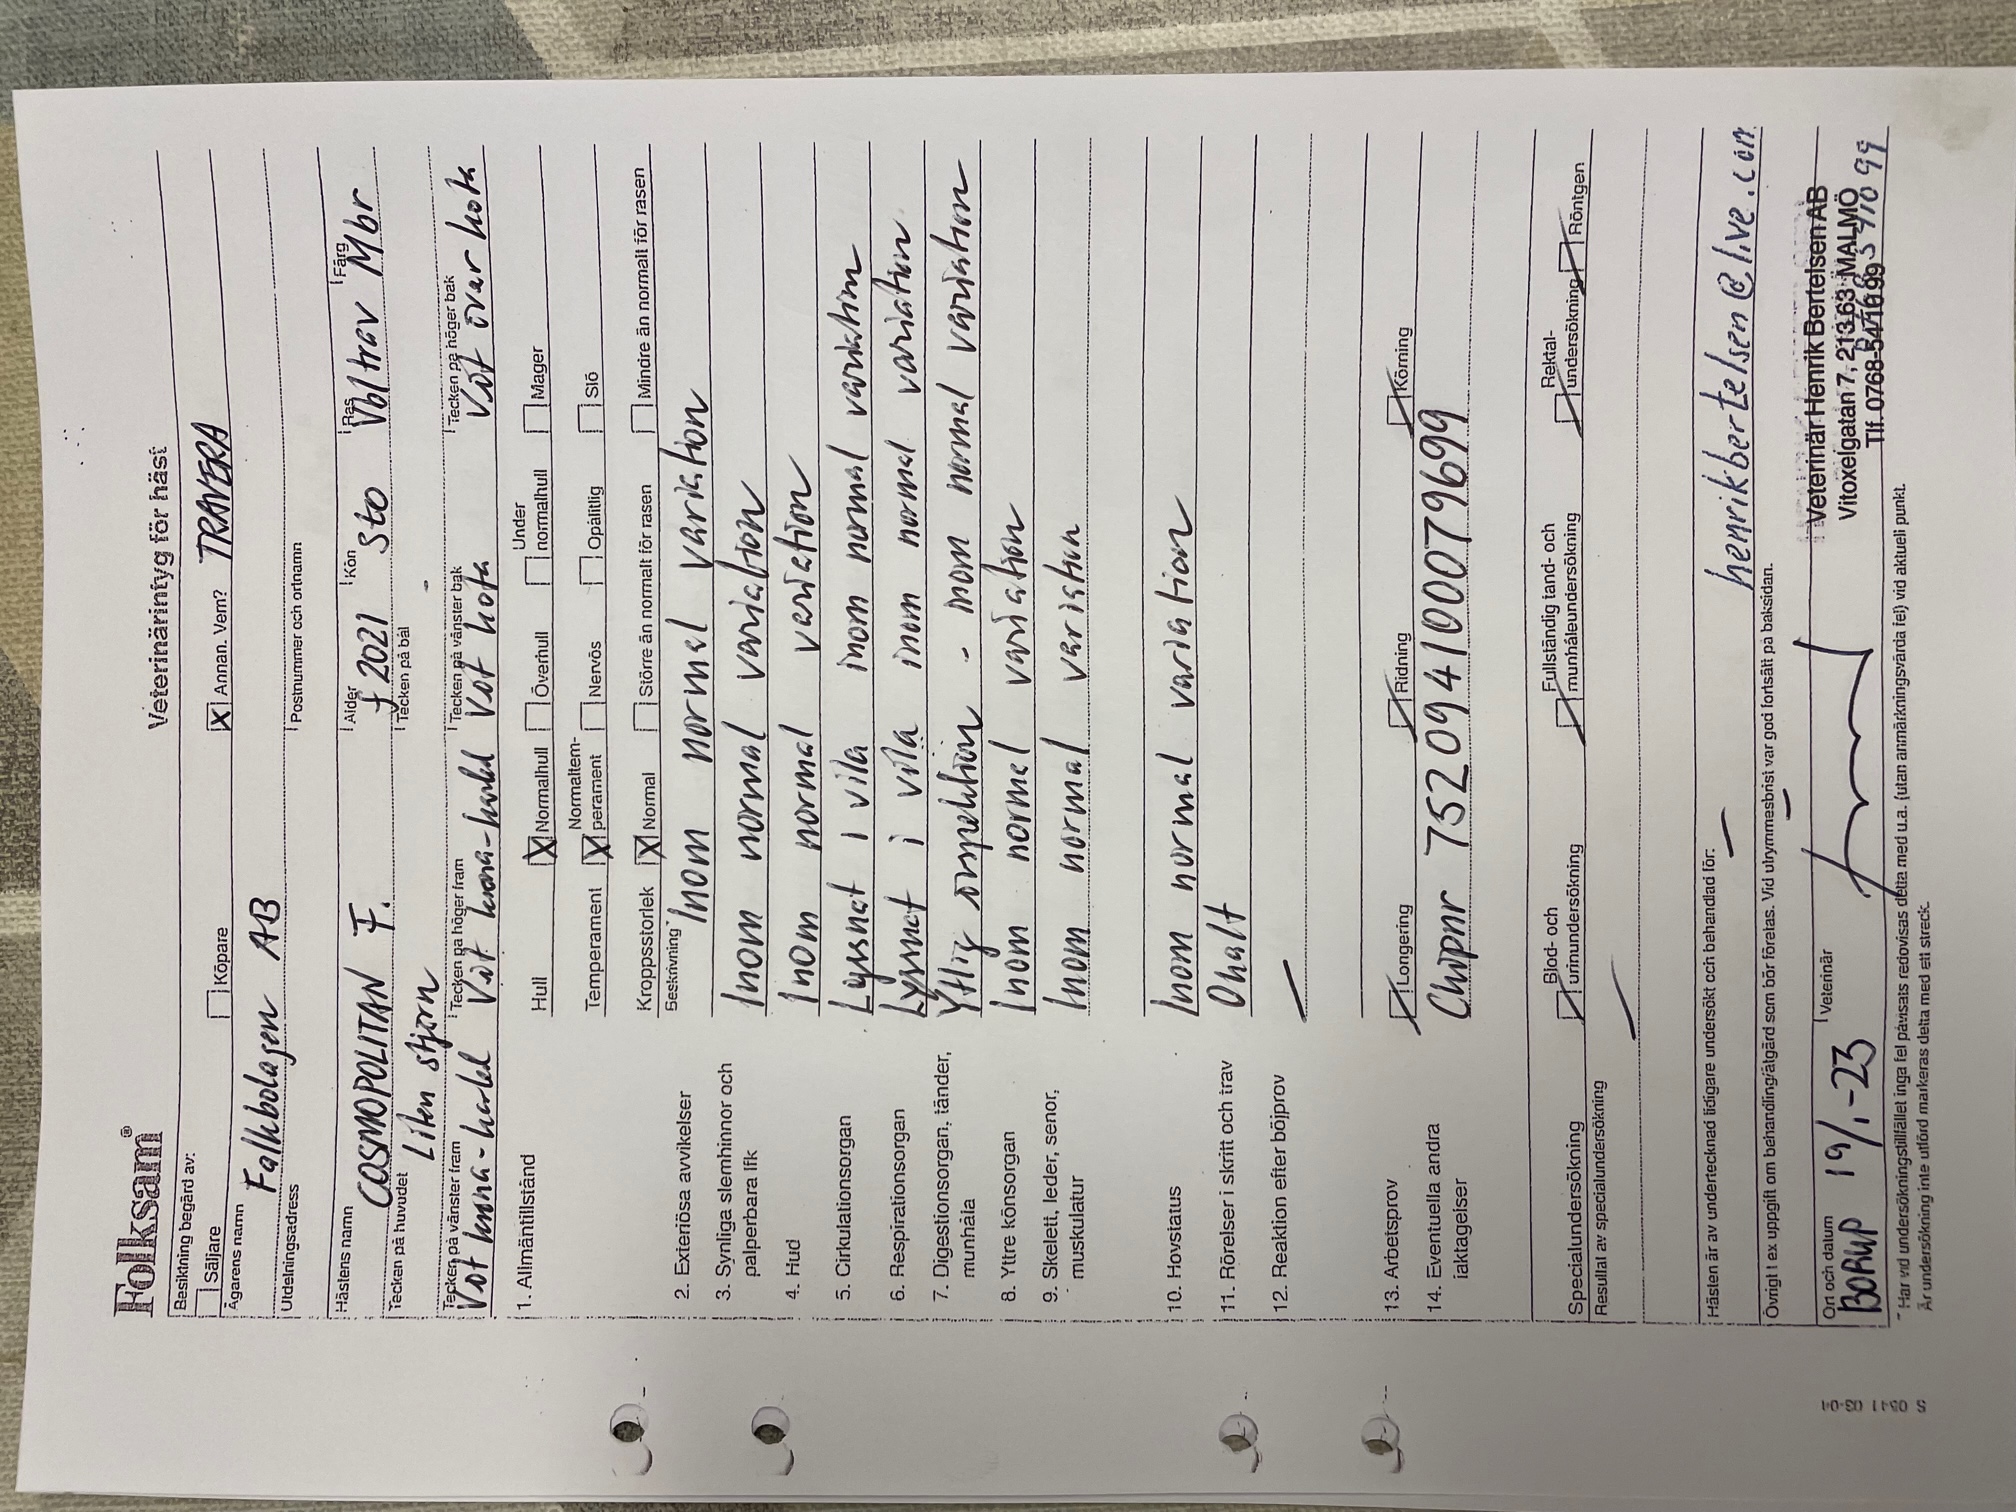 Folksam®
Veterinärintyg för häst
Besiktning begärd av:
Säljare Köpare X Annan. Vem? TRAVERA
Ägarens namn
Falkbolagen AB
Utdelningsadress Postnummer och ortnamn
Hästens namn Ålder Kön Ras Färg
COSMOPOLITAN F. f 2021 Sto Vbltrav Mbr
Tecken på huvudet Tecken på bål
Liten stjärn -
Tecken på vänster fram Tecken på höger fram Tecken på vänster bak Tecken på höger bak
Vöt krona-karled Vit krona-karled Vöt hota Vöt over hota
1. Allmäntillstånd Hull X Normalhull Överhull Under normalhull Mager
Temperament X Normaltem-perament Nervös Opålitlig Slö
Kroppsstorlek X Normal Större än normalt för rasen Mindre än normalt för rasen
Beskrivning*
2. Exteriösa avvikelser Inom normal variation
3. Synliga slemhinnor och Inom normal variation
palperbara lfk
4. Hud Inom normal variation
5. Cirkulationsorgan Lyssnat i vila inom normal variation
6. Respirationsorgan Lyssnat i vila inom normal variation
7. Digestionsorgan, tänder, Yttig inspektion - inom normal variation
munhåla
8. Yttre könsorgan Inom normal variation
9. Skelett, leder, senor, Inom normal variation
muskulatur
10. Hovstatus Inom normal variation
11. Rörelser i skritt och trav Ohalt
12. Reaktion efter böjprov —
13. Arbetsprov Longering Ridning Körning
14. Eventuella andra Chipnr 752 094100079699
iakttagelser
Specialundersökning Blod- och urinundersökning Fullständig tand- och munhåleundersökning Rektal-undersökning Röntgen
Resultat av specialundersökning
—
Hästen är av undertecknad tidigare undersökt och behandlad för: —
henrikbertelsen@live.com
Övrigt t ex uppgift om behandling/åtgärd som bör företas. Vid utrymmesbrist var god fortsätt på baksidan.
—
Ort och datum Veterinär
BORUP 19/1-23
Veterinär Henrik Bertelsen AB
Vitoxelgatan 7, 213 63 MALMÖ
Tlf. 0768-541699
*Har vid undersökningstillfället inga fel påvisats redovisas detta med u.a. (utan anmärkningsvärda fel) vid aktuell punkt.
Är undersökning inte utförd markeras detta med ett streck.
S 0541 03-04